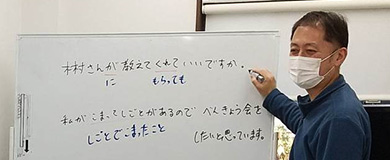 木村さんが教えてくれていいですか。
に もらっても
私がこまってしごとがあるので べんきょう会を
しごとでこまたこと したいと思っています。